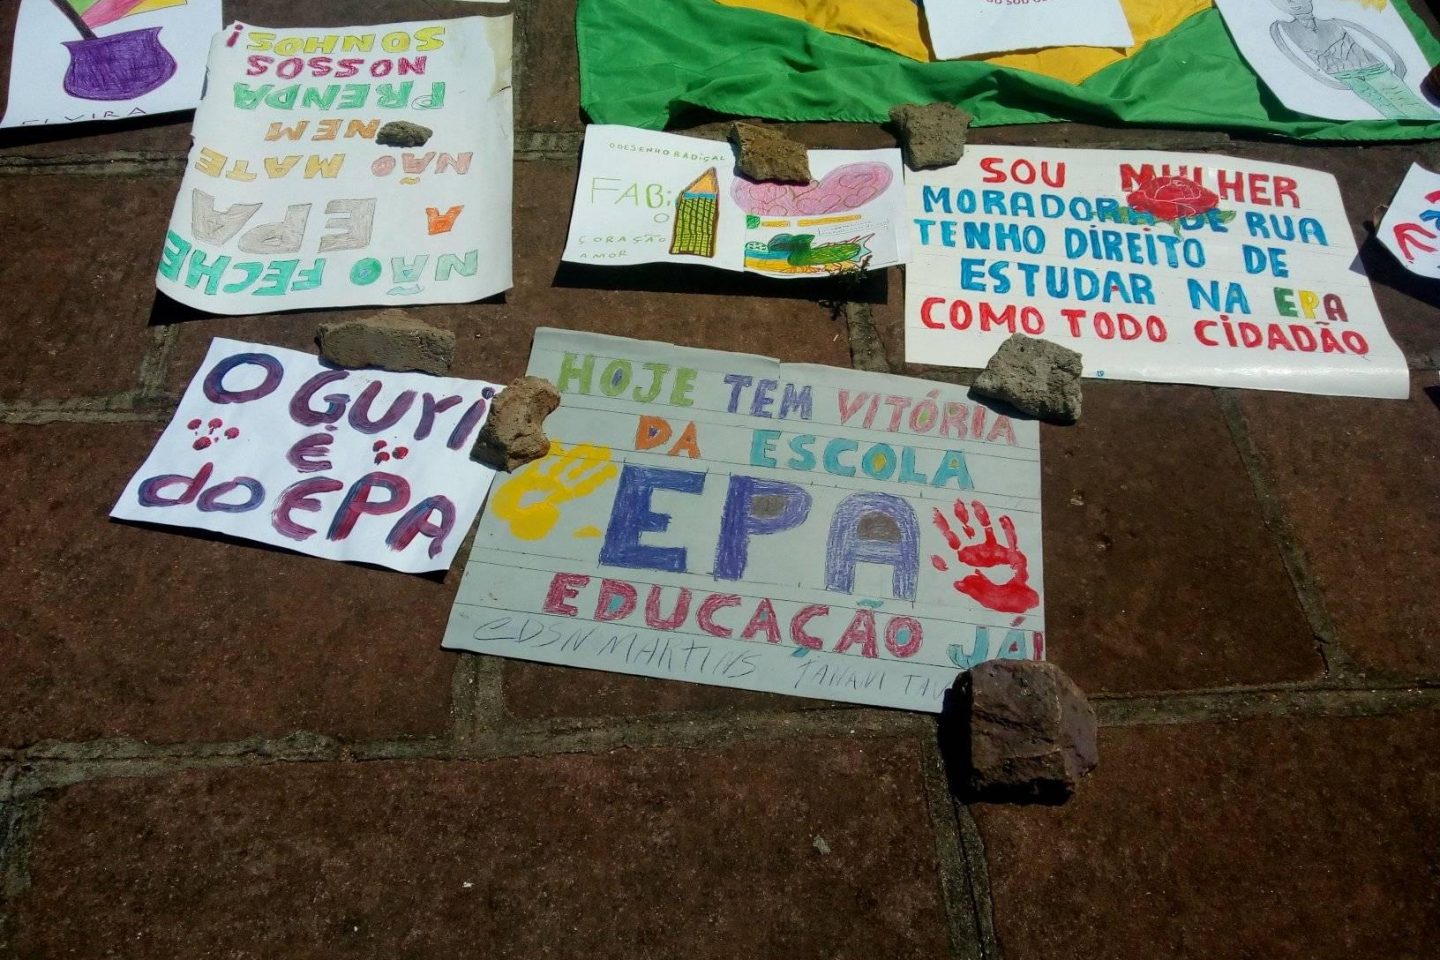 ELVIRA
NÃO FECHE
A EPA
NÃO MATE
NEM
PRENDA
NOSSOS
SONHOS!
O DESENHO RADICAL
FABi
O
CORAÇÃO
AMOR
SOU MULHER
MORADORA DE RUA
TENHO DiREiTO DE
ESTUDAR NA EPA
COMO TODO CiDADÃO
O GUYi
É
do EPA
HOJE TEM VITÓRIA
DA ESCOLA
EPA
EDUCAÇÃO JÁ!
eDSN MARTINS TANAVI TAV